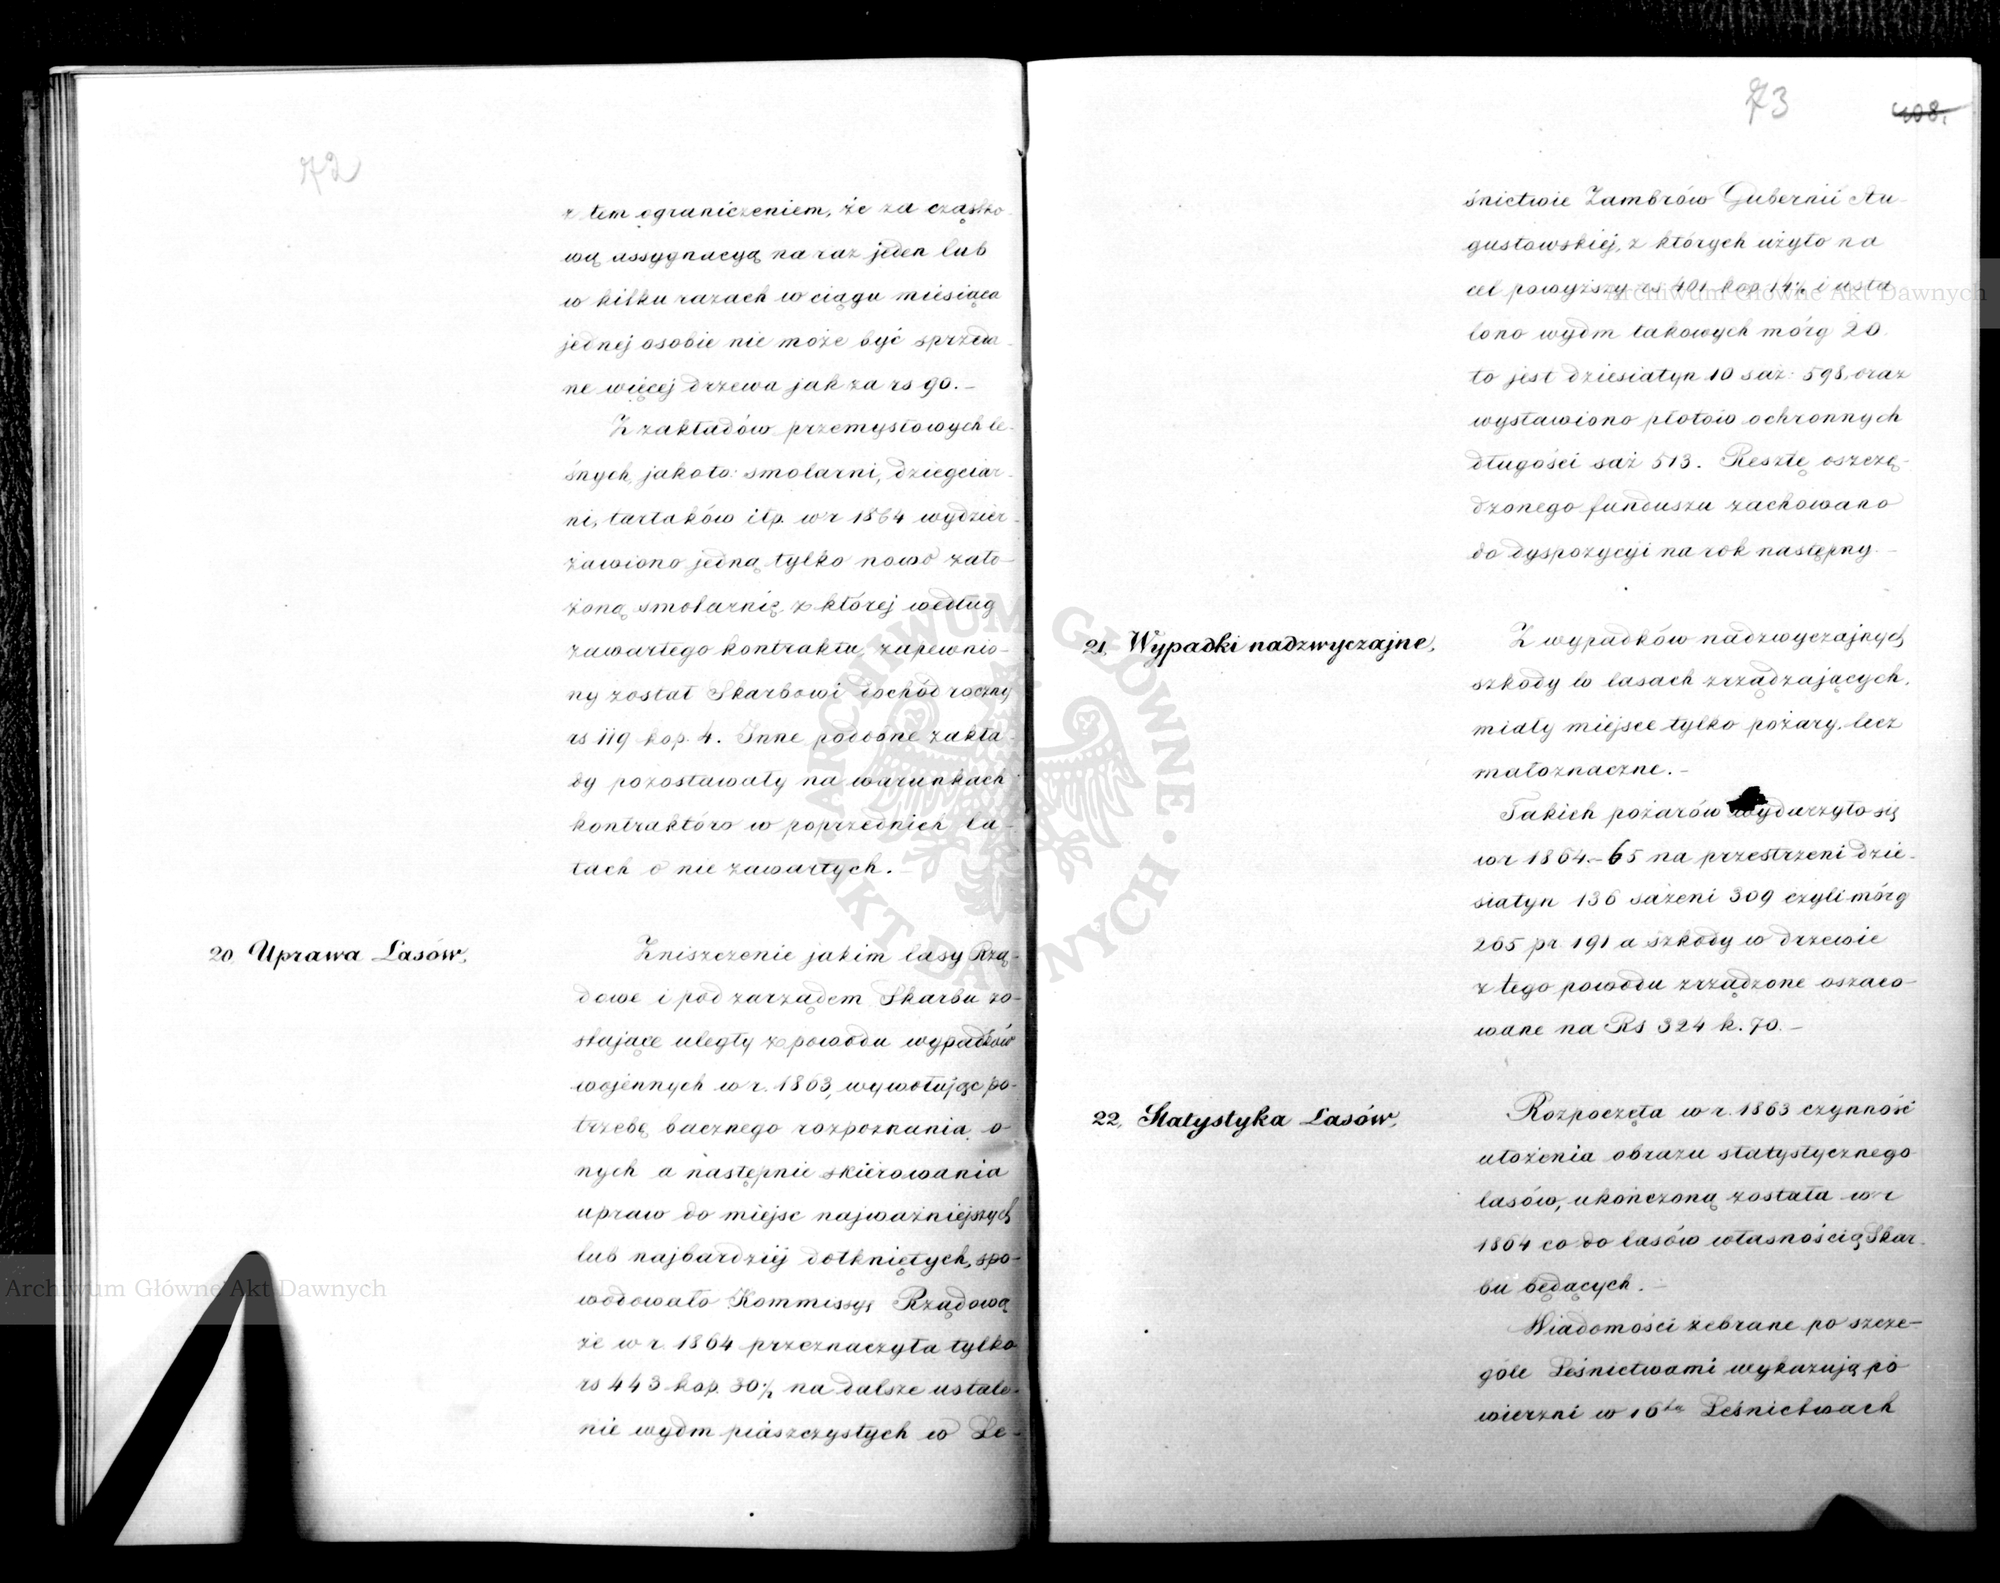 72
z tem ograniczeniem, że za cząstko-
wą assygnacyą na raz jeden lub
w kilku razach w ciągu miesiąca
jednej osobie nie może być sprzeda-
ne więcej drzewa jak za rs 90.-
Z zakładów przemysłowych le-
śnych jakoto: smolarni, dziegciar-
ni, tartaków itp. w r 1864 wydzier-
żawiono jedną tylko nowo zało-
żoną smolarnię z której według
zawartego kontraktu, zapewnio-
ny został Skarbowi dochód roczny
rs 119 kop. 4. Inne podobne zakła-
dy pozostawały na warunkach
kontraktów w poprzednich la-
tach o nie zawartych.-
20, Uprawa Lasów,
Zniszczenie jakim lasy Rzą-
dowe i pod zarządem Skarbu zo-
stające uległy z powodu wypadków
wojennych w r. 1863, wywołując po-
trzebę bacznego rozpoznania o-
nych a następnie skierowania
upraw do miejsc najważniejszych
lub najbardziej dotkniętych, spo-
wodowało Kommissyę Rządową
że w r. 1864 przeznaczyła tylko
rs 443 kop. 30½ na dalsze ustale-
nie wydm piaszczystych w Le-
73
408.
śnictwie Zambrów Gubernii Au-
gustowskiej, z których użyto na
cel powyższy rs 401 kop 14½ i usta
lono wydm takowych mórg 20.
to jest dziesiatyn 10 saż: 598, oraz
wystawiono płotów ochronnych
długości saż 513. Resztę oszczę-
dzonego funduszu zachowano
do dyspozycyi na rok następny.-
21, Wypadki nadzwyczajne,
Z wypadków nadzwyczajnych
szkody w lasach zrządzających,
miały miejsce tylko pożary, lecz
małoznaczne.-
Takich pożarów wydarzyło się
w r 1864-65 na przestrzeni dzie-
siatyn 136 sażeni 309 czyli mórg
265 pr. 191 a szkody w drzewie
z tego powodu zrządzone oszaco-
wane na Rs 324 k. 70.-
22, Statystyka Lasów,
Rozpoczęta w r. 1863 czynność
ułożenia obrazu statystycznego
lasów, ukończoną została w r
1864 co do lasów własnością Skar-
bu będących.-
Wiadomości zebrane po szcze-
góle Leśnictwami wykazują po
wierzni w 16tu Leśnictwach
Archiwum Główne Akt Dawnych
Archiwum Główne Akt Dawnych
ARCHIWUM GŁÓWNE · AKT DAWNYCH ·